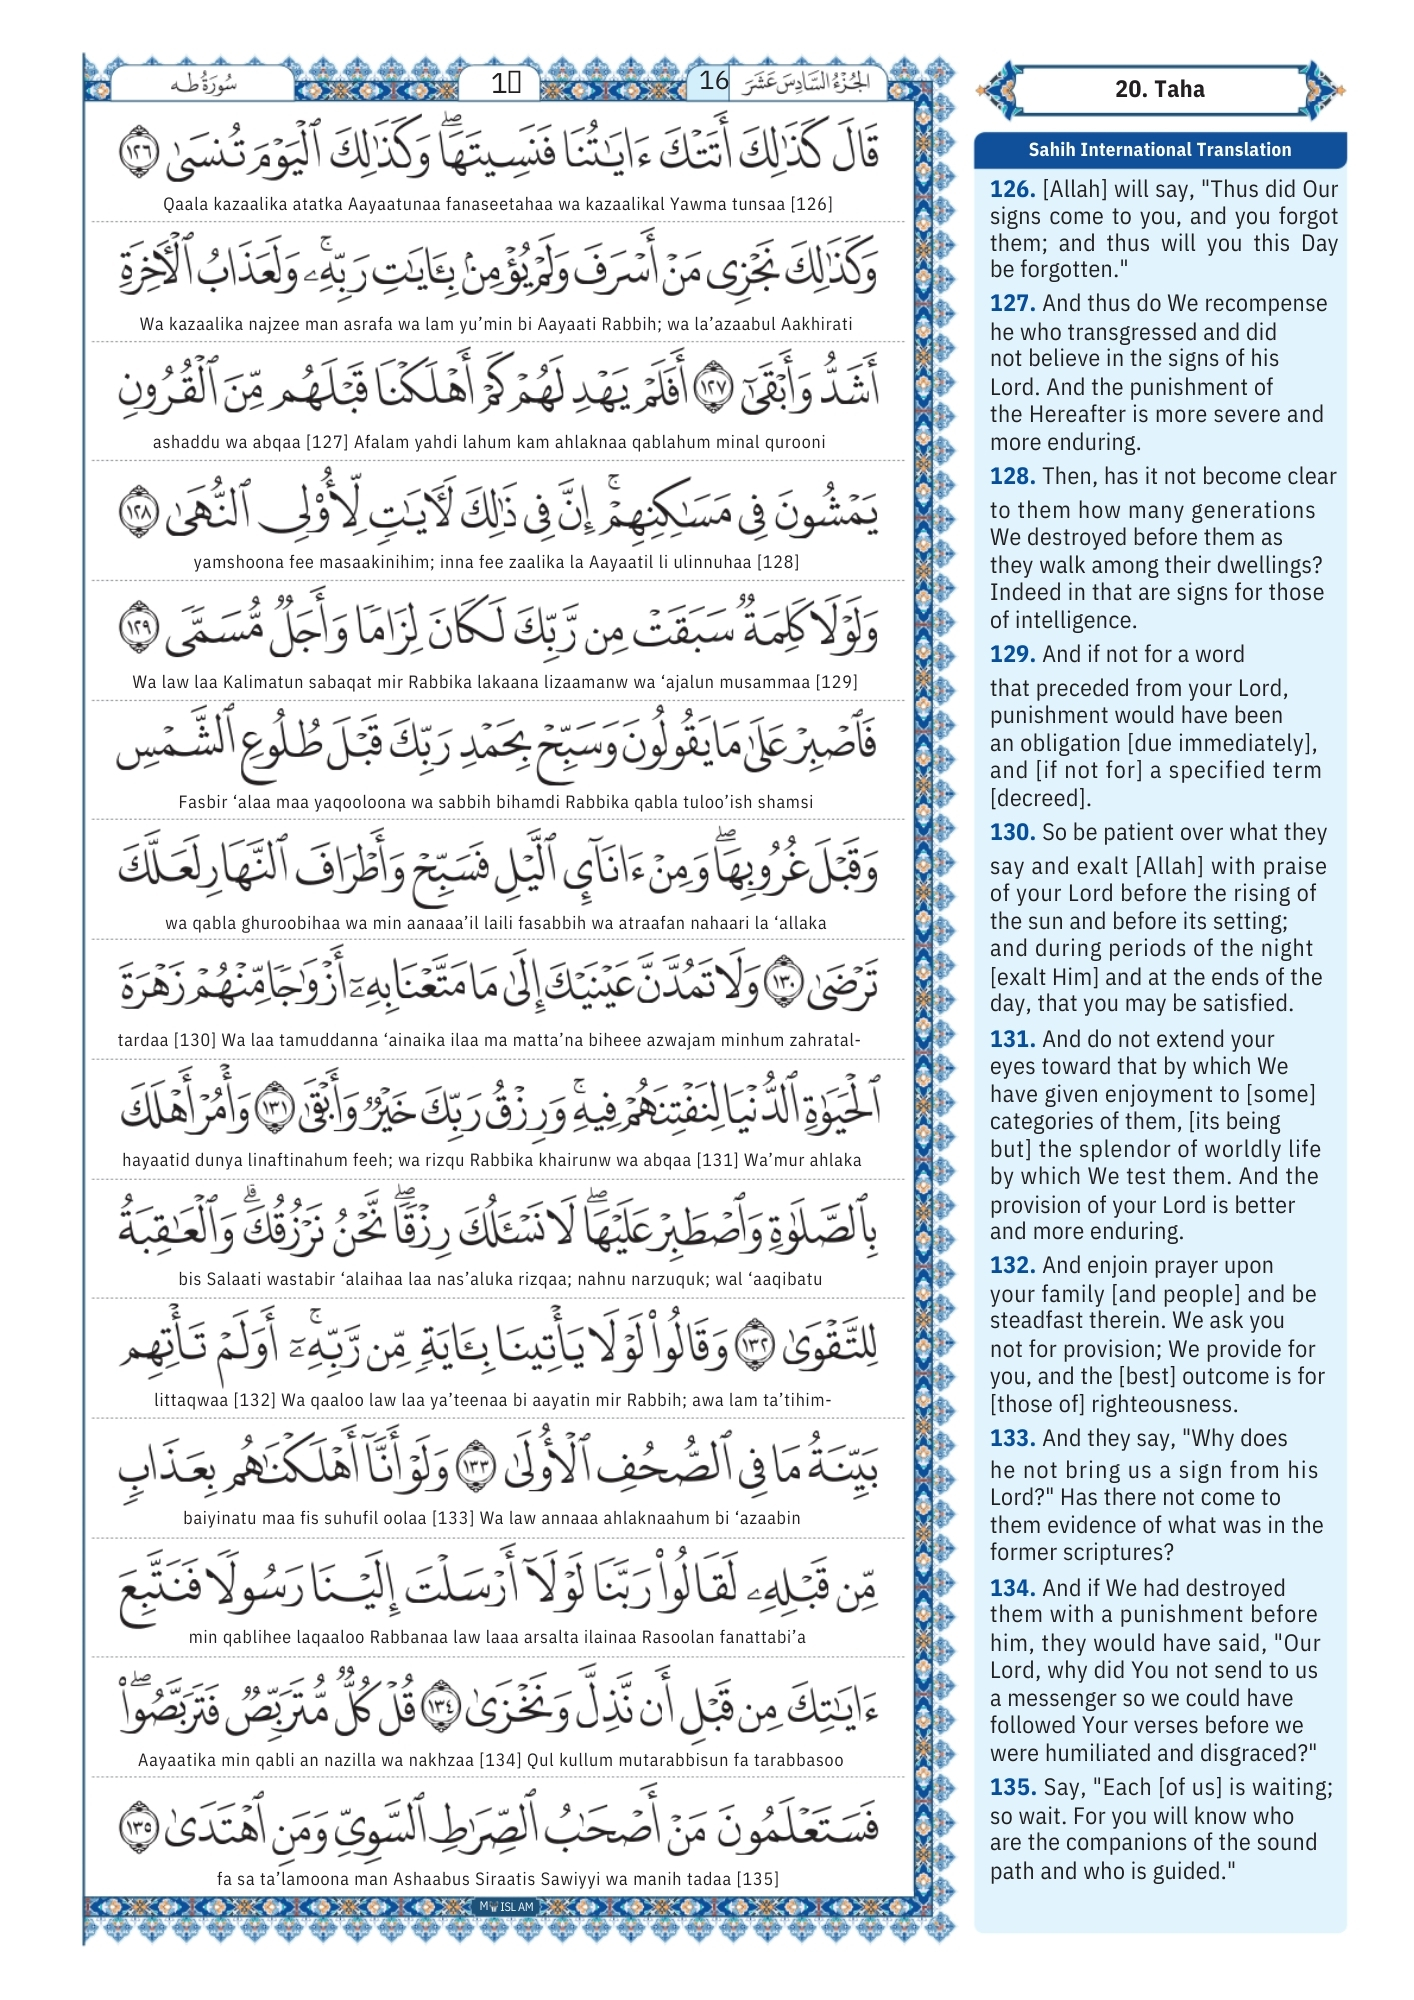 سُورَةُ طه
1
16
الجُزْءُ السَّادِسَ عَشَرَ
قَالَ كَذَٰلِكَ أَتَتْكَ ءَايَـٰتُنَا فَنَسِيتَهَا ۖ وَكَذَٰلِكَ ٱلْيَوْمَ تُنسَىٰ ١٢٦
Qaala kazaalika atatka Aayaatunaa fanaseetahaa wa kazaalikal Yawma tunsaa [126]
وَكَذَٰلِكَ نَجْزِى مَنْ أَسْرَفَ وَلَمْ يُؤْمِنۢ بِـَٔايَـٰتِ رَبِّهِۦ ۚ وَلَعَذَابُ ٱلْـَٔاخِرَةِ
Wa kazaalika najzee man asrafa wa lam yu’min bi Aayaati Rabbih; wa la’azaabul Aakhirati
أَشَدُّ وَأَبْقَىٰٓ ١٢٧ أَفَلَمْ يَهْدِ لَهُمْ كَمْ أَهْلَكْنَا قَبْلَهُم مِّنَ ٱلْقُرُونِ
ashaddu wa abqaa [127] Afalam yahdi lahum kam ahlaknaa qablahum minal qurooni
يَمْشُونَ فِى مَسَـٰكِنِهِمْ ۚ إِنَّ فِى ذَٰلِكَ لَـَٔايَـٰتٍ لِّأُو۟لِى ٱلنُّهَىٰ ١٢٨
yamshoona fee masaakinihim; inna fee zaalika la Aayaatil li ulinnuhaa [128]
وَلَوْلَا كَلِمَةٌ سَبَقَتْ مِن رَّبِّكَ لَكَانَ لِزَامًا وَأَجَلٌ مُّسَمًّى ١٢٩
Wa law laa Kalimatun sabaqat mir Rabbika lakaana lizaamanw wa ‘ajalun musammaa [129]
فَٱصْبِرْ عَلَىٰ مَا يَقُولُونَ وَسَبِّحْ بِحَمْدِ رَبِّكَ قَبْلَ طُلُوعِ ٱلشَّمْسِ
Fasbir ‘alaa maa yaqooloona wa sabbih bihamdi Rabbika qabla tuloo’ish shamsi
وَقَبْلَ غُرُوبِهَا ۖ وَمِنْ ءَانَآئِ ٱلَّيْلِ فَسَبِّحْ وَأَطْرَافَ ٱلنَّهَارِ لَعَلَّكَ
wa qabla ghuroobihaa wa min aanaaa’il laili fasabbih wa atraafan nahaari la ‘allaka
تَرْضَىٰ ١٣٠ وَلَا تَمُدَّنَّ عَيْنَيْكَ إِلَىٰ مَا مَتَّعْنَا بِهِۦٓ أَزْوَٰجًا مِّنْهُمْ زَهْرَةَ
tardaa [130] Wa laa tamuddanna ‘ainaika ilaa ma matta’na biheee azwajam minhum zahratal-
ٱلْحَيَوٰةِ ٱلدُّنْيَا لِنَفْتِنَهُمْ فِيهِ ۚ وَرِزْقُ رَبِّكَ خَيْرٌ وَأَبْقَىٰ ١٣١ وَأْمُرْ أَهْلَكَ
hayaatid dunya linaftinahum feeh; wa rizqu Rabbika khairunw wa abqaa [131] Wa’mur ahlaka
بِٱلصَّلَوٰةِ وَٱصْطَبِرْ عَلَيْهَا ۖ لَا نَسْـَٔلُكَ رِزْقًا ۖ نَّحْنُ نَرْزُقُكَ ۗ وَٱلْعَـٰقِبَةُ
bis Salaati wastabir ‘alaihaa laa nas’aluka rizqaa; nahnu narzuquk; wal ‘aaqibatu
لِلتَّقْوَىٰ ١٣٢ وَقَالُوا۟ لَوْلَا يَأْتِينَا بِـَٔايَةٍ مِّن رَّبِّهِۦٓ ۚ أَوَلَمْ تَأْتِهِم
littaqwaa [132] Wa qaaloo law laa ya’teenaa bi aayatin mir Rabbih; awa lam ta’tihim-
بَيِّنَةُ مَا فِى ٱلصُّحُفِ ٱلْأُولَىٰ ١٣٣ وَلَوْ أَنَّآ أَهْلَكْنَـٰهُم بِعَذَابٍ
baiyinatu maa fis suhufil oolaa [133] Wa law annaaa ahlaknaahum bi ‘azaabin
مِّن قَبْلِهِۦ لَقَالُوا۟ رَبَّنَا لَوْلَآ أَرْسَلْتَ إِلَيْنَا رَسُولًا فَنَتَّبِعَ
min qablihee laqaaloo Rabbanaa law laaa arsalta ilainaa Rasoolan fanattabi’a
ءَايَـٰتِكَ مِن قَبْلِ أَن نَّذِلَّ وَنَخْزَىٰ ١٣٤ قُلْ كُلٌّ مُّتَرَبِّصٌ فَتَرَبَّصُوا۟ ۖ
Aayaatika min qabli an nazilla wa nakhzaa [134] Qul kullum mutarabbisun fa tarabbasoo
فَسَتَعْلَمُونَ مَنْ أَصْحَـٰبُ ٱلصِّرَٰطِ ٱلسَّوِىِّ وَمَنِ ٱهْتَدَىٰ ١٣٥
fa sa ta’lamoona man Ashaabus Siraatis Sawiyyi wa manih tadaa [135]
MY ISLAM
20. Taha
Sahih International Translation
126. [Allah] will say, "Thus did Our
signs come to you, and you forgot
them; and thus will you this Day
be forgotten."
127. And thus do We recompense
he who transgressed and did
not believe in the signs of his
Lord. And the punishment of
the Hereafter is more severe and
more enduring.
128. Then, has it not become clear
to them how many generations
We destroyed before them as
they walk among their dwellings?
Indeed in that are signs for those
of intelligence.
129. And if not for a word
that preceded from your Lord,
punishment would have been
an obligation [due immediately],
and [if not for] a specified term
[decreed].
130. So be patient over what they
say and exalt [Allah] with praise
of your Lord before the rising of
the sun and before its setting;
and during periods of the night
[exalt Him] and at the ends of the
day, that you may be satisfied.
131. And do not extend your
eyes toward that by which We
have given enjoyment to [some]
categories of them, [its being
but] the splendor of worldly life
by which We test them. And the
provision of your Lord is better
and more enduring.
132. And enjoin prayer upon
your family [and people] and be
steadfast therein. We ask you
not for provision; We provide for
you, and the [best] outcome is for
[those of] righteousness.
133. And they say, "Why does
he not bring us a sign from his
Lord?" Has there not come to
them evidence of what was in the
former scriptures?
134. And if We had destroyed
them with a punishment before
him, they would have said, "Our
Lord, why did You not send to us
a messenger so we could have
followed Your verses before we
were humiliated and disgraced?"
135. Say, "Each [of us] is waiting;
so wait. For you will know who
are the companions of the sound
path and who is guided."